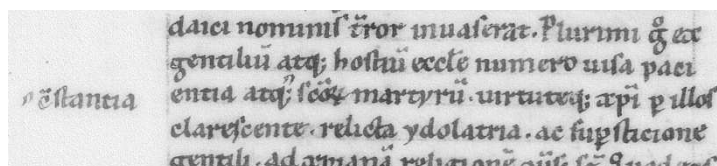 daici nominiſ t̃ror inuaſerat. Plurimi g̊ ex
gentiliũ atq; hoſtiũ eccl̃e numero uiſa paci
c̃ſtantia
entia atq; ſc̃oꝝ martyrũ. uirtuteq; xp̃i ꝑ illos
clareſcente. relicta ydolatria. ac ſuꝑſticione
gentili. ad xp̃ianã religionẽ